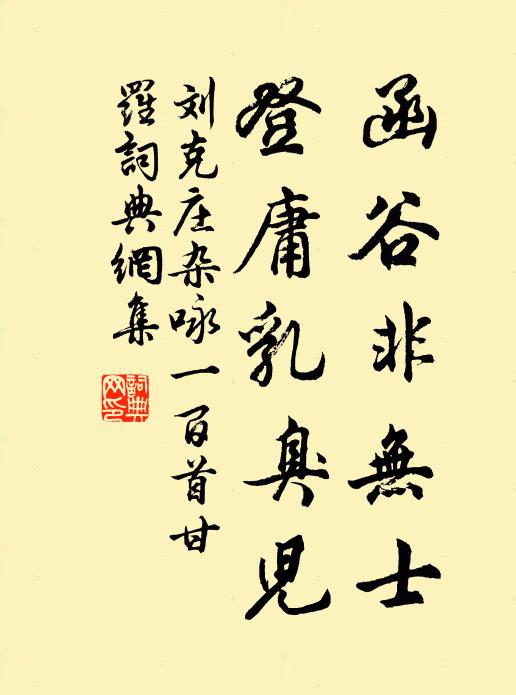 函谷非無士
登庸乳臭児
刘克庄杂咏一百首甘
羅詞典網集
詞典网印